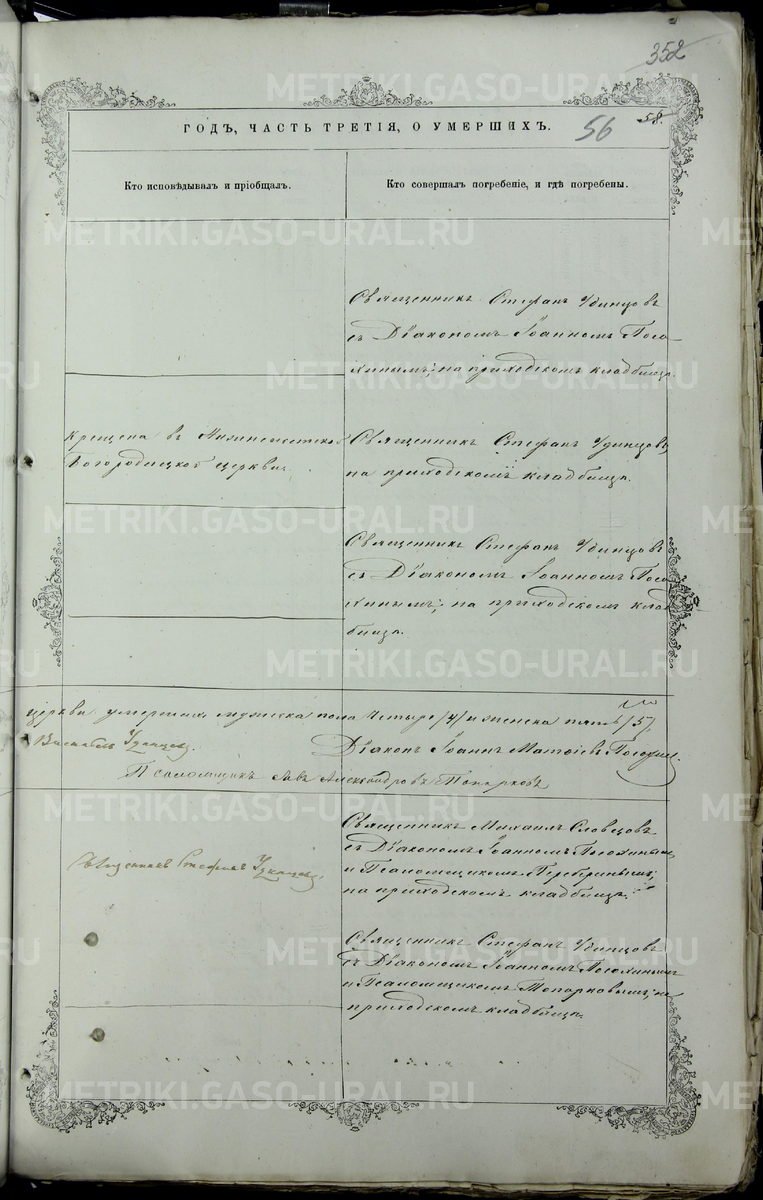 352
58.
56
ГОДЪ, ЧАСТЬ ТРЕТІЯ, О УМЕРШИХЪ.
Кто исповѣдывалъ и пріобщалъ.
Кто совершалъ погребеніе, и гдѣ погребены.
Священникъ Стефанъ Удинцовъ
съ Діакономъ Іоанномъ Посо-
хинымъ; на приходскомъ кладбищѣ.
Крещена въ
Богородицкой церкви.
Священникъ Стефанъ Удинцовъ,
на приходскомъ кладбищѣ.
Священникъ Стефанъ Удинцовъ
съ Діакономъ Іоанномъ Посо-
хинымъ; на приходскомъ клад-
бищѣ.
церкви умершихъ мужеска пола четыре /4/ и женска пять /5/
Удинцовъ.
Діаконъ Іоаннъ Посохин.
Псаломщикъ Александровъ Топорковъ
Священникъ Стефанъ Удинцовъ.
Священникъ Михаилъ Словцовъ
съ Діакономъ Іоанномъ Посохинымъ
и Псаломщикомъ
на приходскомъ кладбищѣ.
Священникъ Стефанъ Удинцовъ
съ Діакономъ Іоанномъ Посохинымъ
и Псаломщикомъ Топорковымъ; на
приходскомъ кладбищѣ.
METRIKI.GASO-URAL.RU